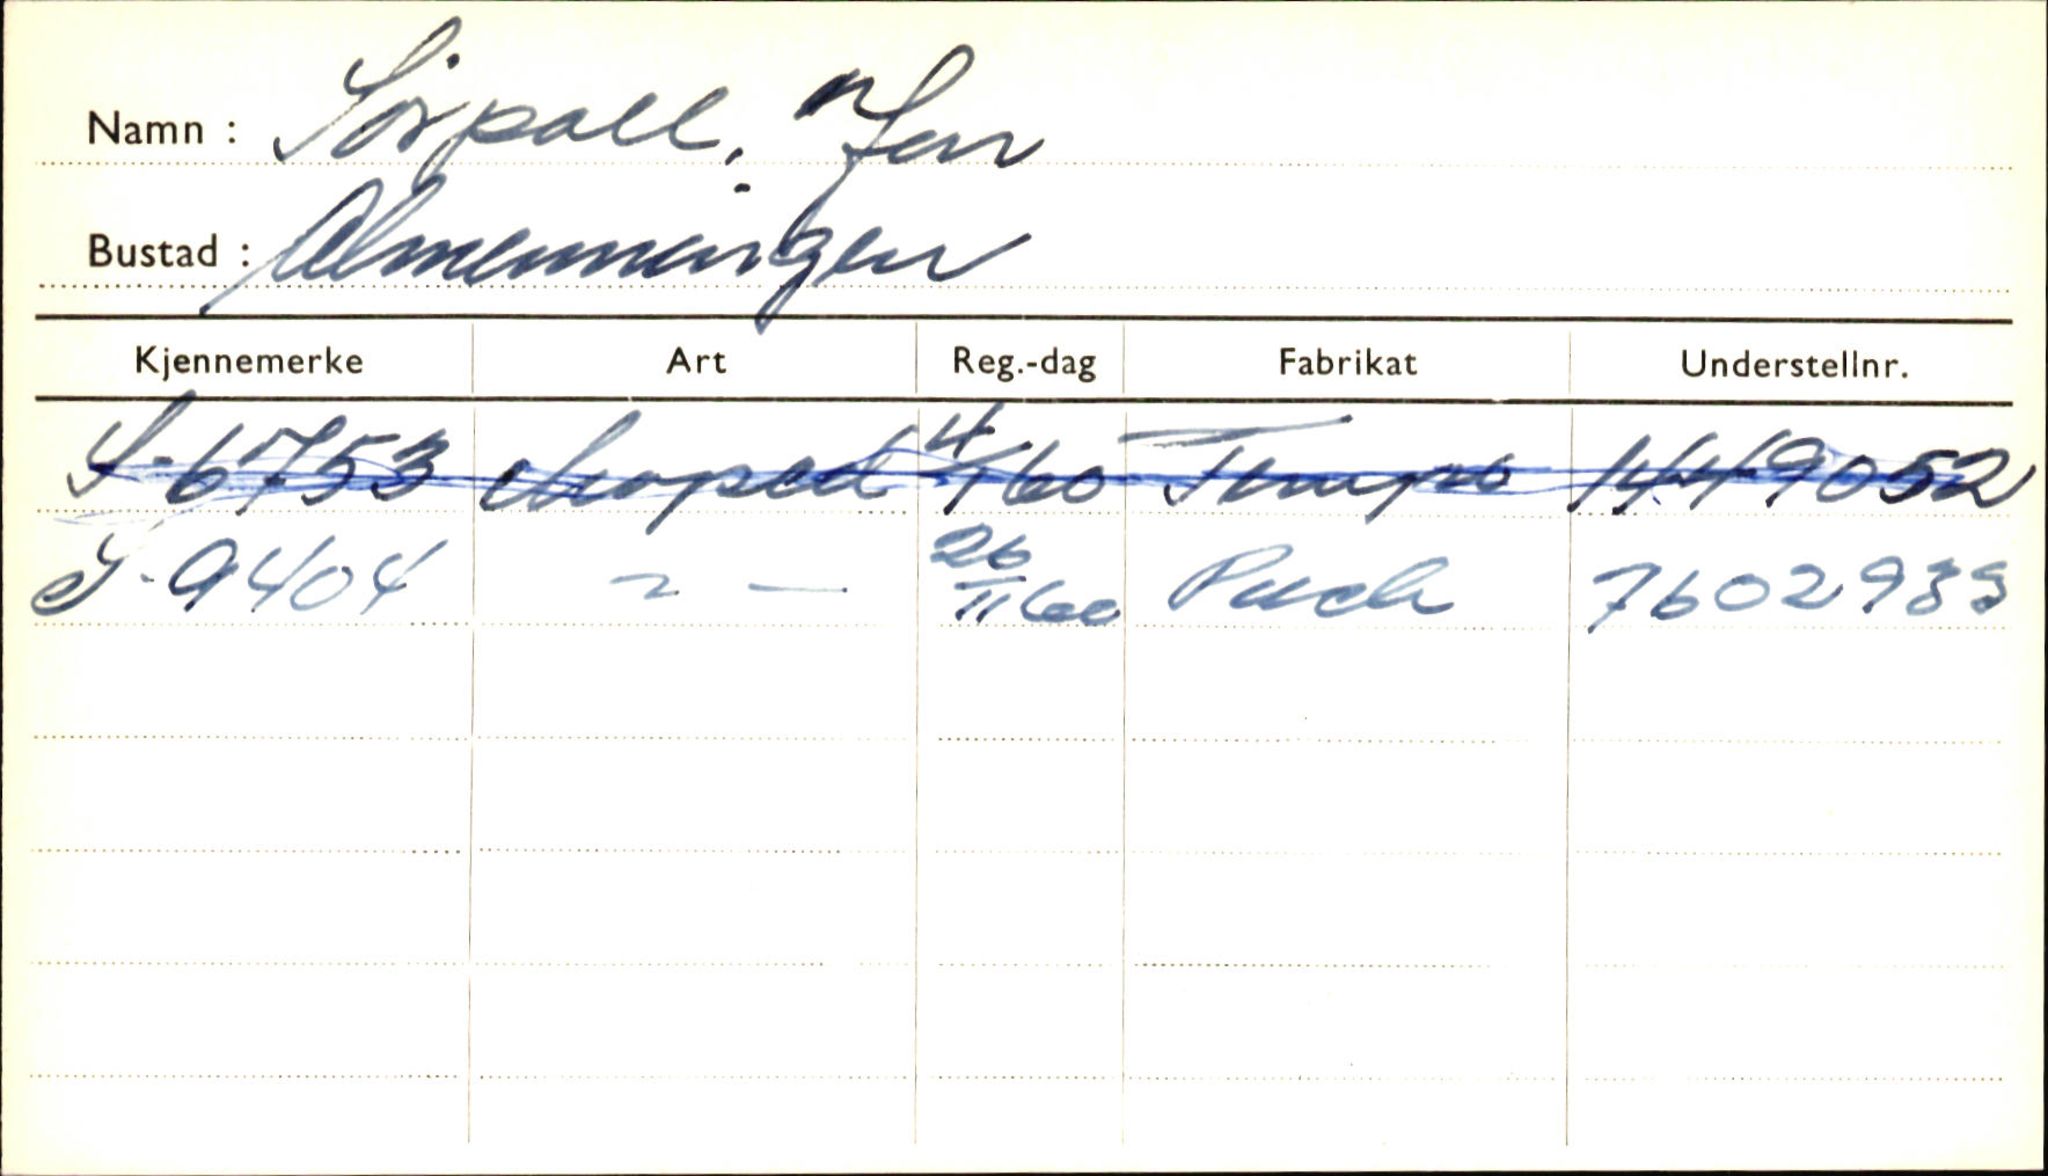 Namn : Sørpoll, Jon
Bustad : Almenningen
Kjennemerke Art Reg.-dag Fabrikat Understellnr.
S-6753 Moped 4/1 60 Tempo 1449052
S-9404 " — 26/11 60 Puch 7602939